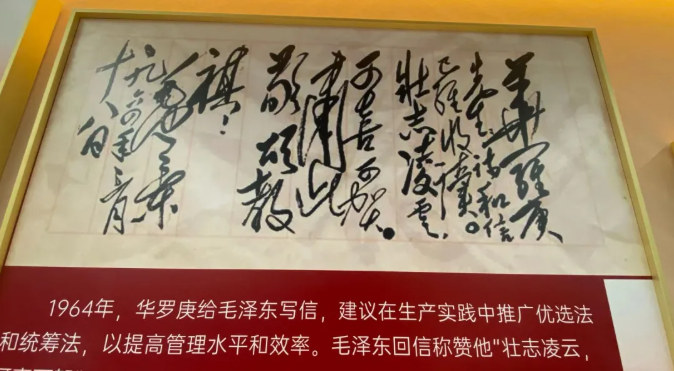 華羅庚
先生：詩和信
已經收讀。
壯志凌雲，
可喜可賀。
肅此
敬頌教
祺！
毛澤東
一九六四年三月
十八日
1964年，华罗庚给毛泽东写信，建议在生产实践中推广优选法
和统筹法，以提高管理水平和效率。毛泽东回信称赞他"壮志凌云，